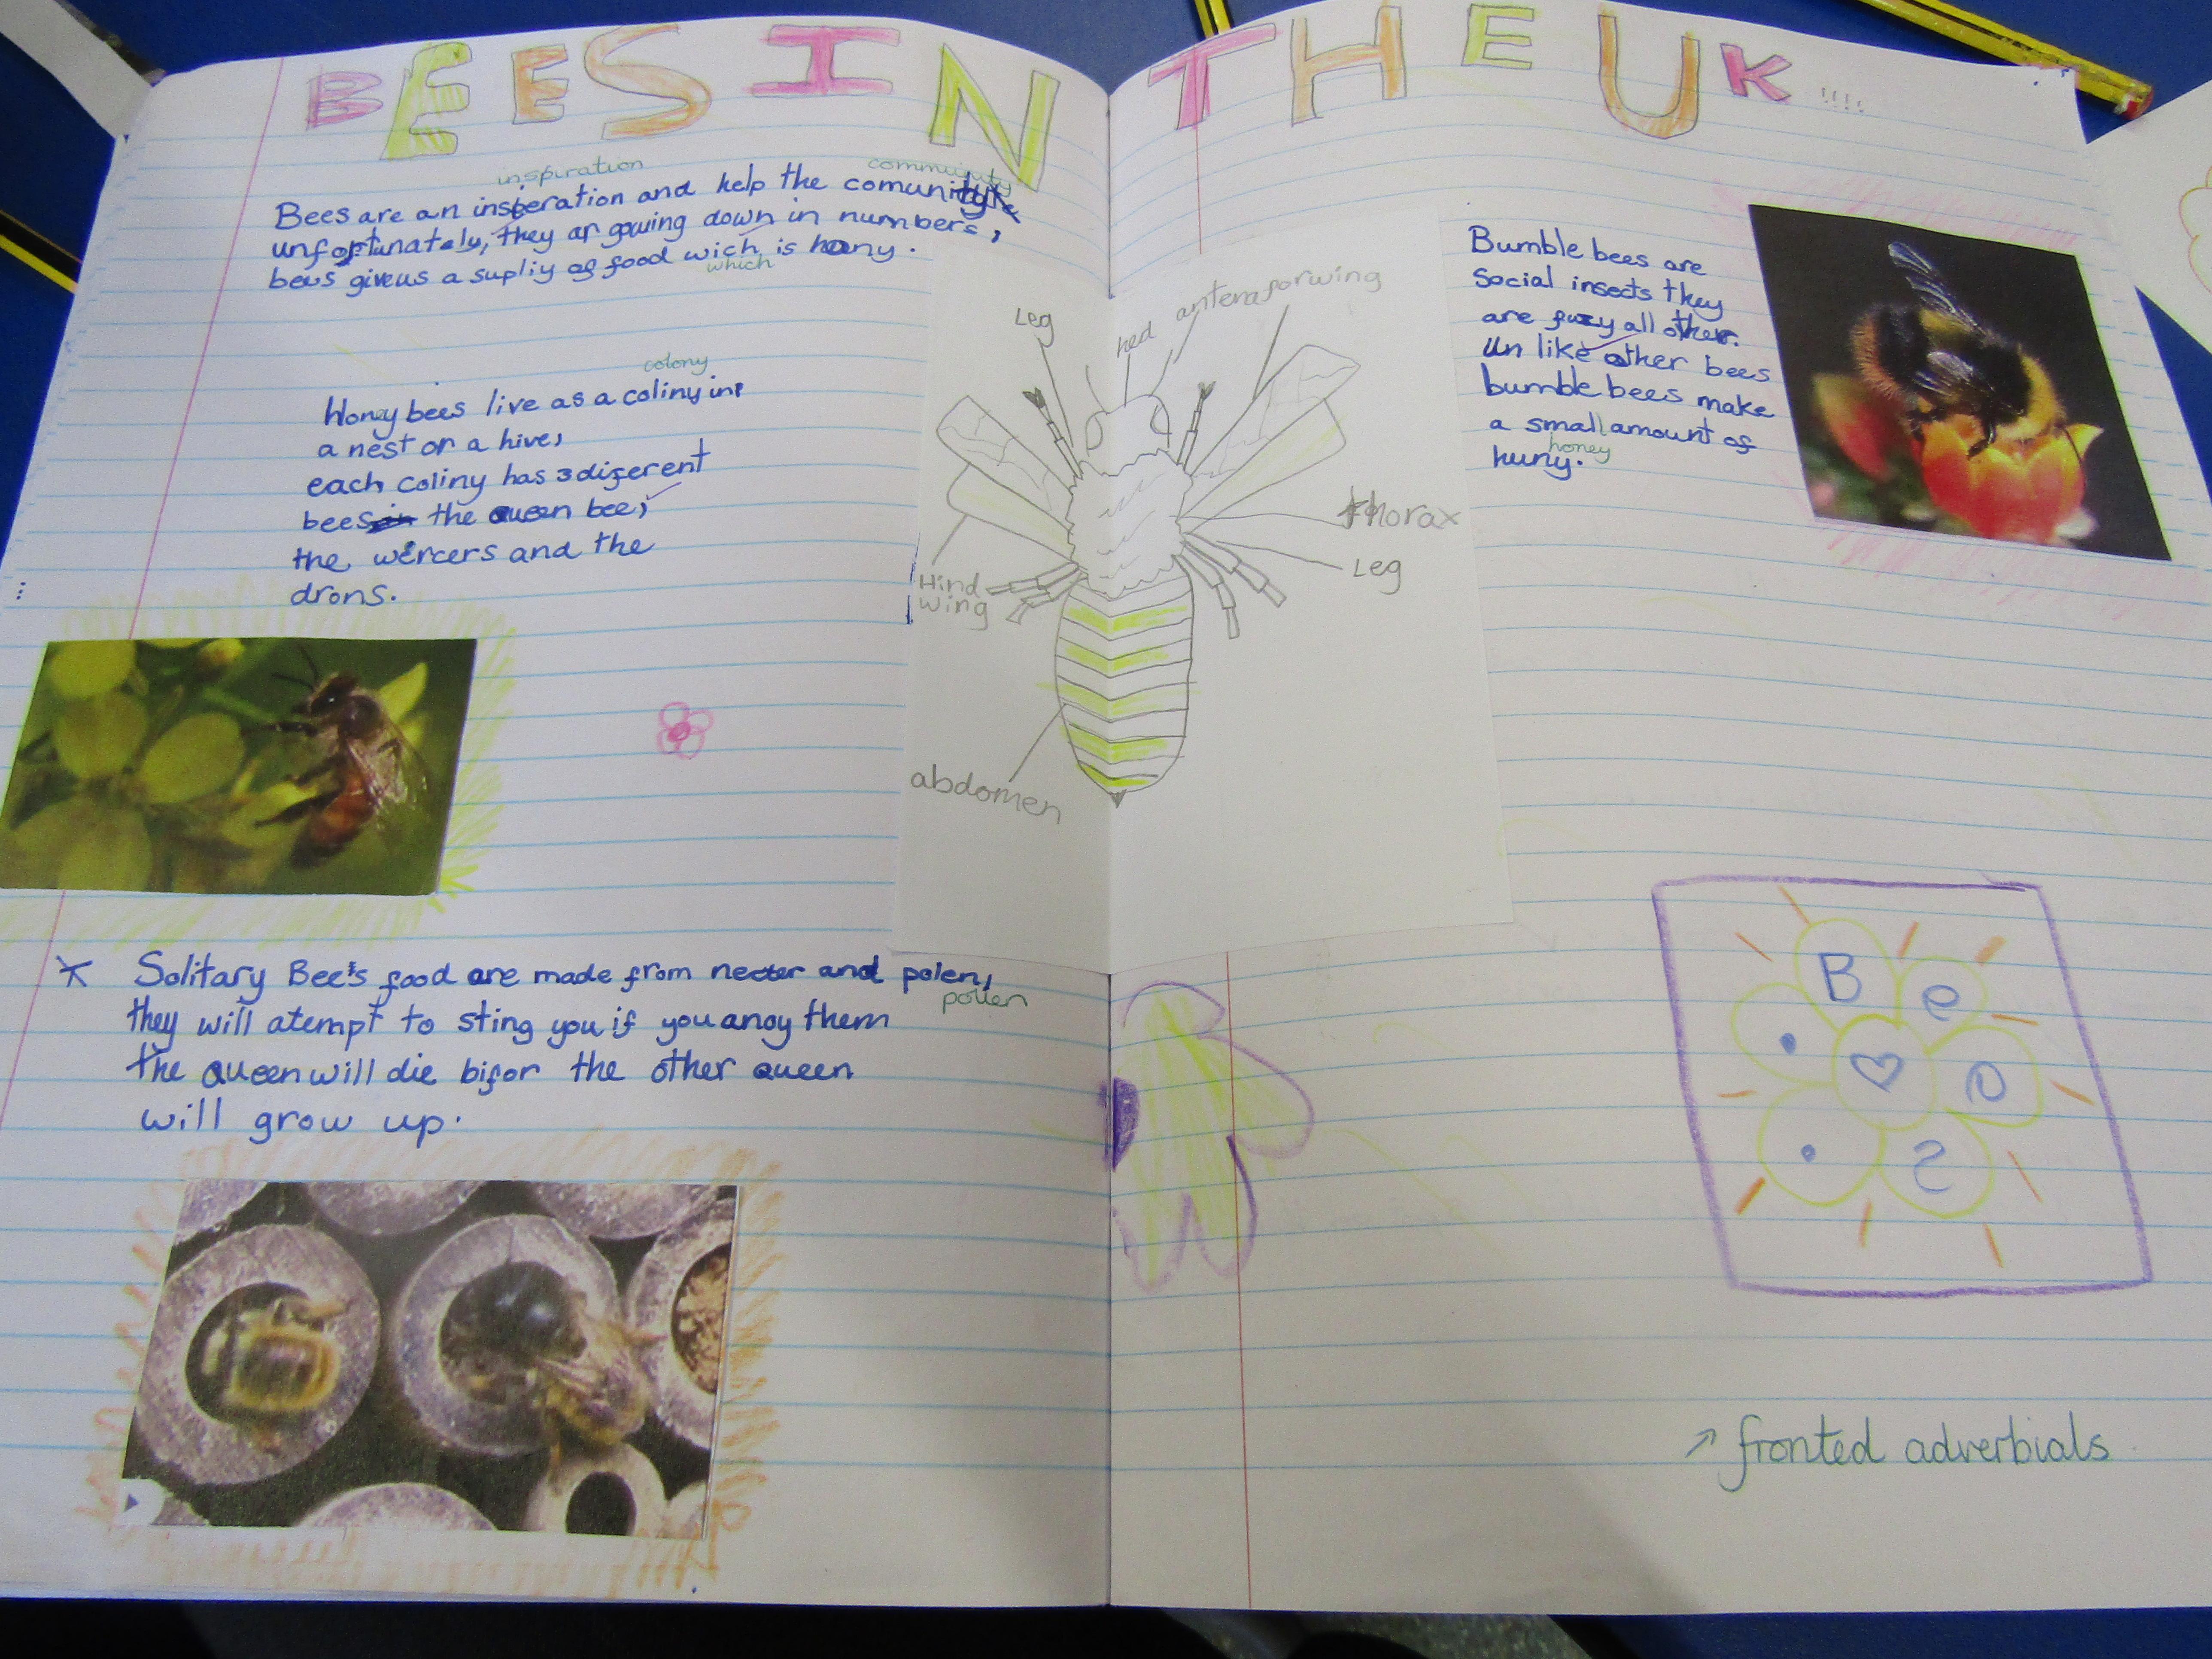 BEES IN THE UK !!!!
inspiration community
Bees are an insperation and help the comunity
unfortunately, they ar gowing down in numbers,
bees give us a supliy of food wich is hony.
which
colony
Honey bees live as a coliny in
a nest or a hive,
each coliny has 3 diferent
bees the queen bee,
the wercers and the
drons.
Leg
hed
antena
forwing
Hind
wing
thorax
Leg
abdomen
Bumble bees are
social insects they
are fuzy all other.
un like other bees
bumble bees make
a small amount of
honey
huny.
Solitary Bee's food are made from necter and polen,
pollen
they will atempt to sting you if you anoy them
the queen will die bifor the other queen
will grow up.
B e e s
fronted adverbials